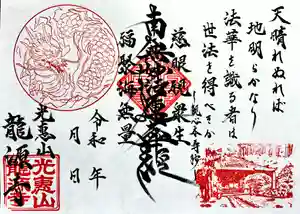 天晴れぬれば
地明らかなり
法華を識る者は
世法を得べきか
南無妙法蓮華経
慈眼視衆生
福聚海無量
令和　年
月　日
光恵山
龍源寺
光恵山
龍源寺